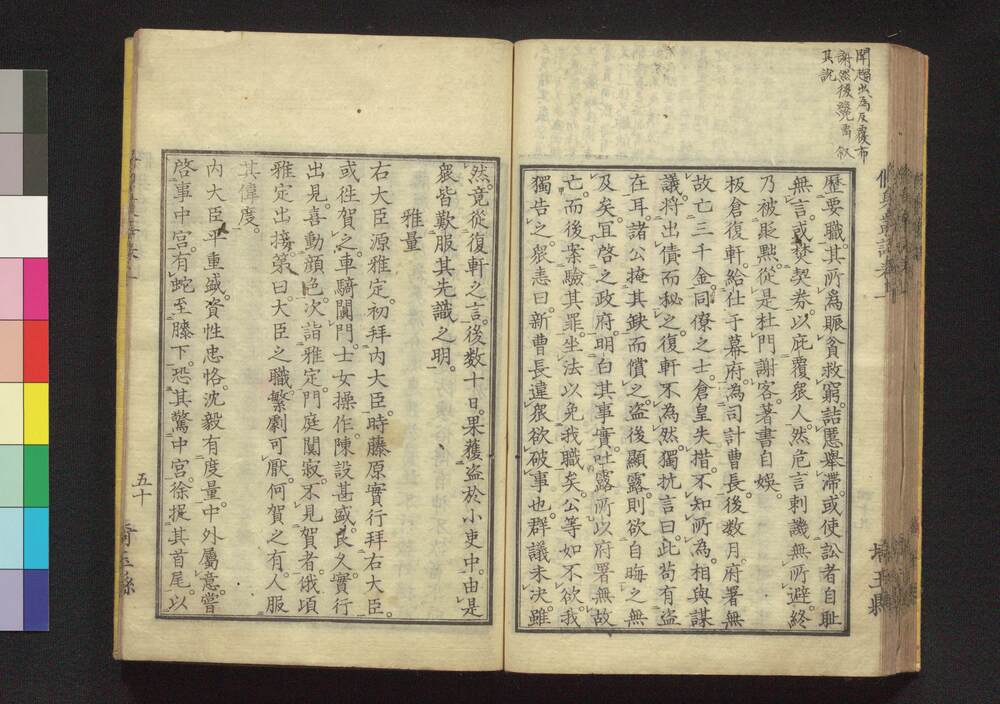 聞趨出爲反覆布
謝然後
其説
歴要職。其所爲賑貧救窮、詰慝舉滯。或使訟者自耻
無言。或焚契券。以庇覆衆人。然危言刺譏無所避。終
乃被貶黜。從是杜門謝客。著書自娯。
板倉復軒。給仕于幕府。為司計曹長。後数月。府署無
故亡三千金。同僚之士。倉皇失措。不知所為。相與謀
議。將出債而秘之。復軒不為然。獨抗言曰。此苟有盗
在耳。諸公掩其缺而償之。盗後顯露。則欲自晦之無
及矣。宜啓之政府。明白其事實。吐露所以府署無故
亡。而後案驗其罪。坐法以免我職矣。公等如不欲。我
獨告之。衆恚曰。新曹長違衆欲破事也。群議未决。雖
然。竟從復軒之言。後数十日。果獲盗於小吏中。由是
衆皆歎服其先識之明。
雅量
右大臣源雅定。初拜内大臣。時藤原實行拜右大臣。
或徃賀之。車騎闐門。士女操作。陳設甚盛。良久實行
出見。喜動顔色。次詣雅定。門庭闃寂。不見賀者。俄頃
雅定出接。第曰。大臣之職。繁劇可厭。何賀之有。人服
其偉度。
内大臣平重盛。資性忠恪。沈毅有度量。中外屬意。嘗
啓事中宮。有蛇至膝下。恐其驚中宮。徐捉其首尾。以
五十